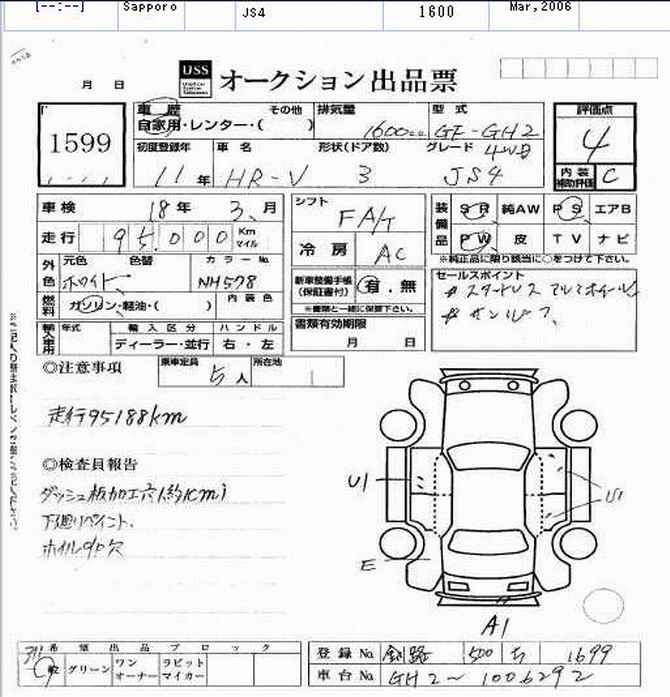 [--:--] Sapporo JS4 1600 Mar,2006
月 日
USS オークション出品票
1599
車歴 その他 排気量 型式
自家用・レンター・( ) 1600cc GF-GH2
初度登録年 車名 形状(ドア数) グレード 4WD
11年 HR-V 3 JS4
評価点
4
内装補助評価 C
車検 18年 3月
走行 95,000 Km マイル
外色 元色 色替 カラーNo
ホワイト NH578
燃料 ガソリン・軽油・( ) 内装色
輸入車用 年式 輸入区分 ハンドル
ディーラー・並行 右・左
シフト FA/T
冷房 AC
新車整備手帳(保証書付) 有・無
※書類と一緒に保管下さい。
書類有効期限
月 日
装備品 SR 純AW PS エアB
PW 皮 TV ナビ
※純正品に限り該当に○をつけて下さい。
セールスポイント
# スタッドレス アルミホイール
# サンルーフ
◎注意事項 乗車定員 5人 所在地
走行95188km
◎検査員報告
ダッシュ板加工穴(約1cm)
下廻りペイント.
ホイルcap欠
U1
U1
E
A1
希望出品ブロック
グリーン ワンオーナー ラビットマイカー
登録No 釧路 500 ち 1699
車台No GH2〜1006292